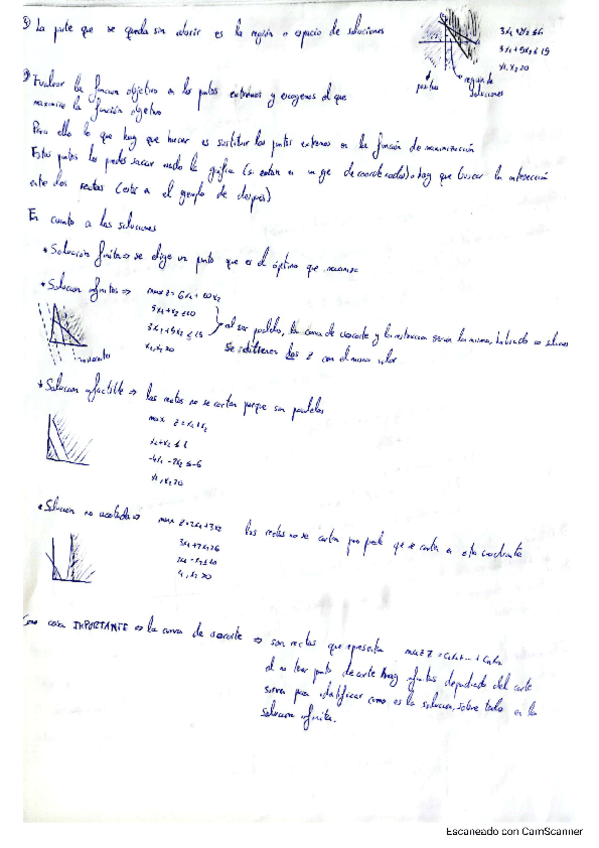 3) La parte que se queda sin cubrir es la región o espacio de soluciones
3x1 + 5x2 ≤ 15
x1, x2 ≥ 0
región de
soluciones
Evaluar la función objetivo en los puntos extremos y escogemos el que
maximice la función objetivo
Para ello lo que hay que hacer es sustituir los puntos extremos en la función de maximización
Estos puntos los puedes sacar la gráfica (si están en un eje de coordenadas) o hay que buscar la intersección
entre dos rectas (está en el ejemplo de después)
En cuanto a las soluciones
* Solución finita ⇒ se elige un punto que es el óptimo que maximiza
* Solución infinitas ⇒ max z = 6x1 + 10x2
3x1 + 5x2 ≤ 15
x1, x2 ≥ 0
al ser paralelas, la curva de isocoste y la restricción serán la misma,
Se obtienen dos z con el mismo valor
* Solución infactible ⇒ las rectas no se cortan porque son paralelas
max z = x1 + x2
x1 + x2 ≤ 1
x1, x2 ≥ 0
* Solución no acotada ⇒ max z = 2x1 + 3x2 las rectas no se cortan pero puede que se corten en otro cuadrante
x1, x2 ≥ 0
Como cosa IMPORTANTE ⇒ la curva de isocoste ⇒ son rectas que representa max z
al no tener punto de corte hay infinitas dependiendo del corte
sirven para identificar como es la solución, sobre todo en la
solución infinita.
Escaneado con CamScanner